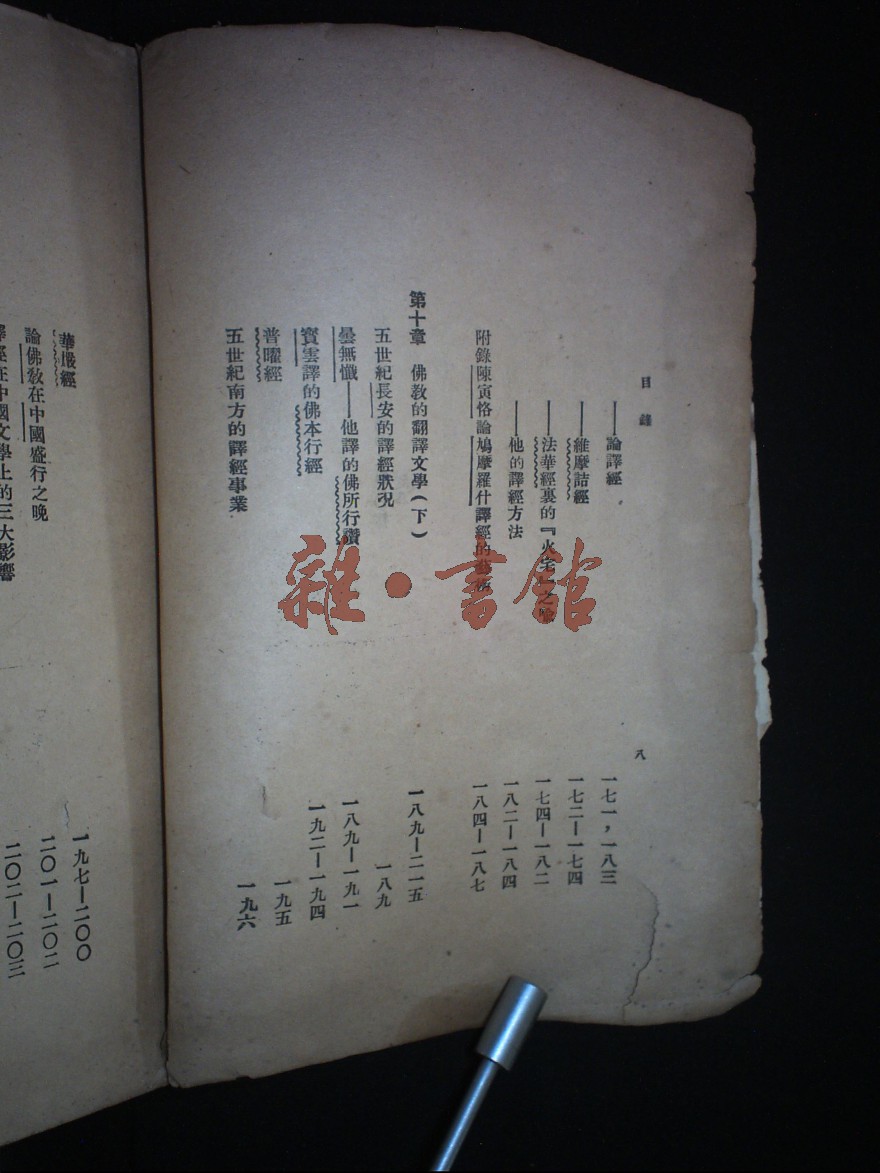 目錄
八
——論譯經
一七一,一八三
——維摩詰經
一七二—一七四
——法華經裏的『火宅』之喻
一七四—一八二
——他的譯經方法
一八二—一八四
附錄陳寅恪論鳩摩羅什譯經的藝術
一八四—一八七
第十章 佛教的翻譯文學(下)
一八九—二一五
五世紀長安的譯經狀況
一八九
曇無懺——他譯的佛所行讚
一八九—一九一
寶雲譯的佛本行經
一九二—一九四
普曜經
一九五
五世紀南方的譯經事業
一九六
華嚴經
一九七—二〇〇
論佛教在中國盛行之晚
二〇一—二〇二
譯經在中國文學上的三大影響
二〇二—二〇三
雜·書館